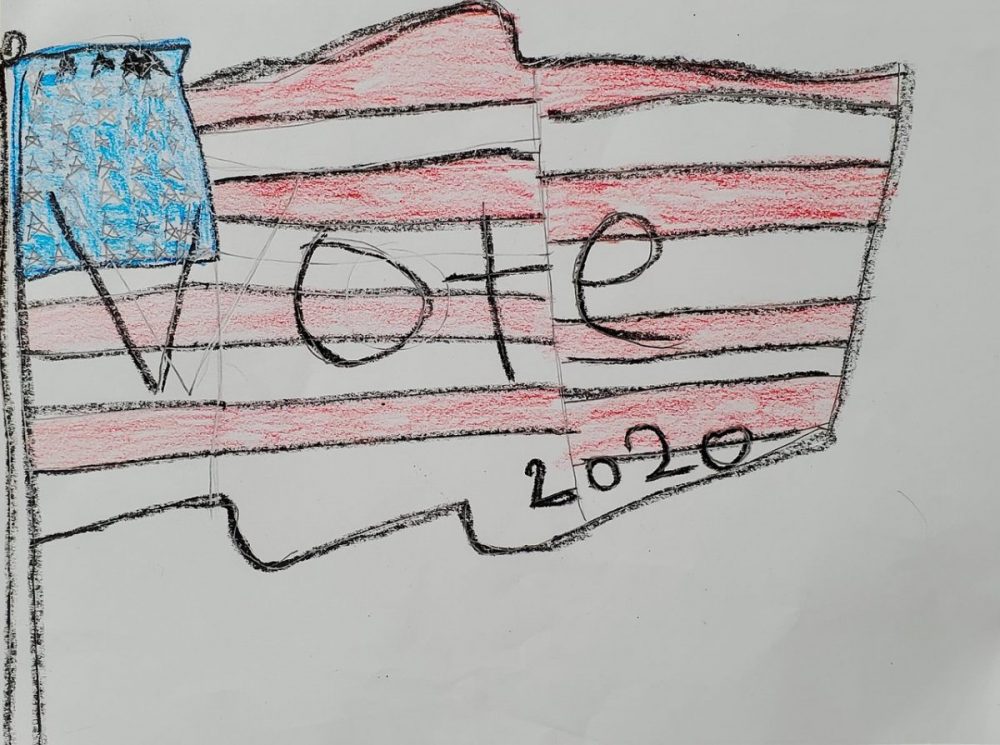 Vote
2020